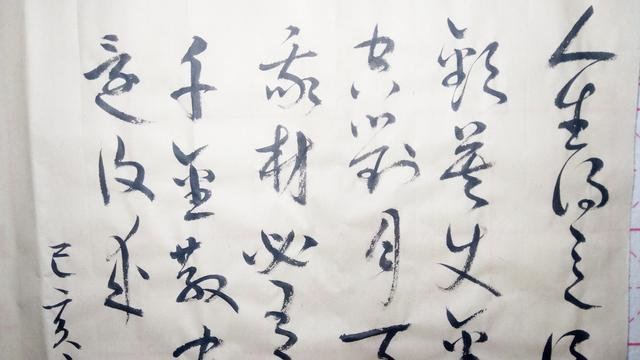 人生得意
歡莫使金
空對月天
我材必有
千金散
還復來
己亥